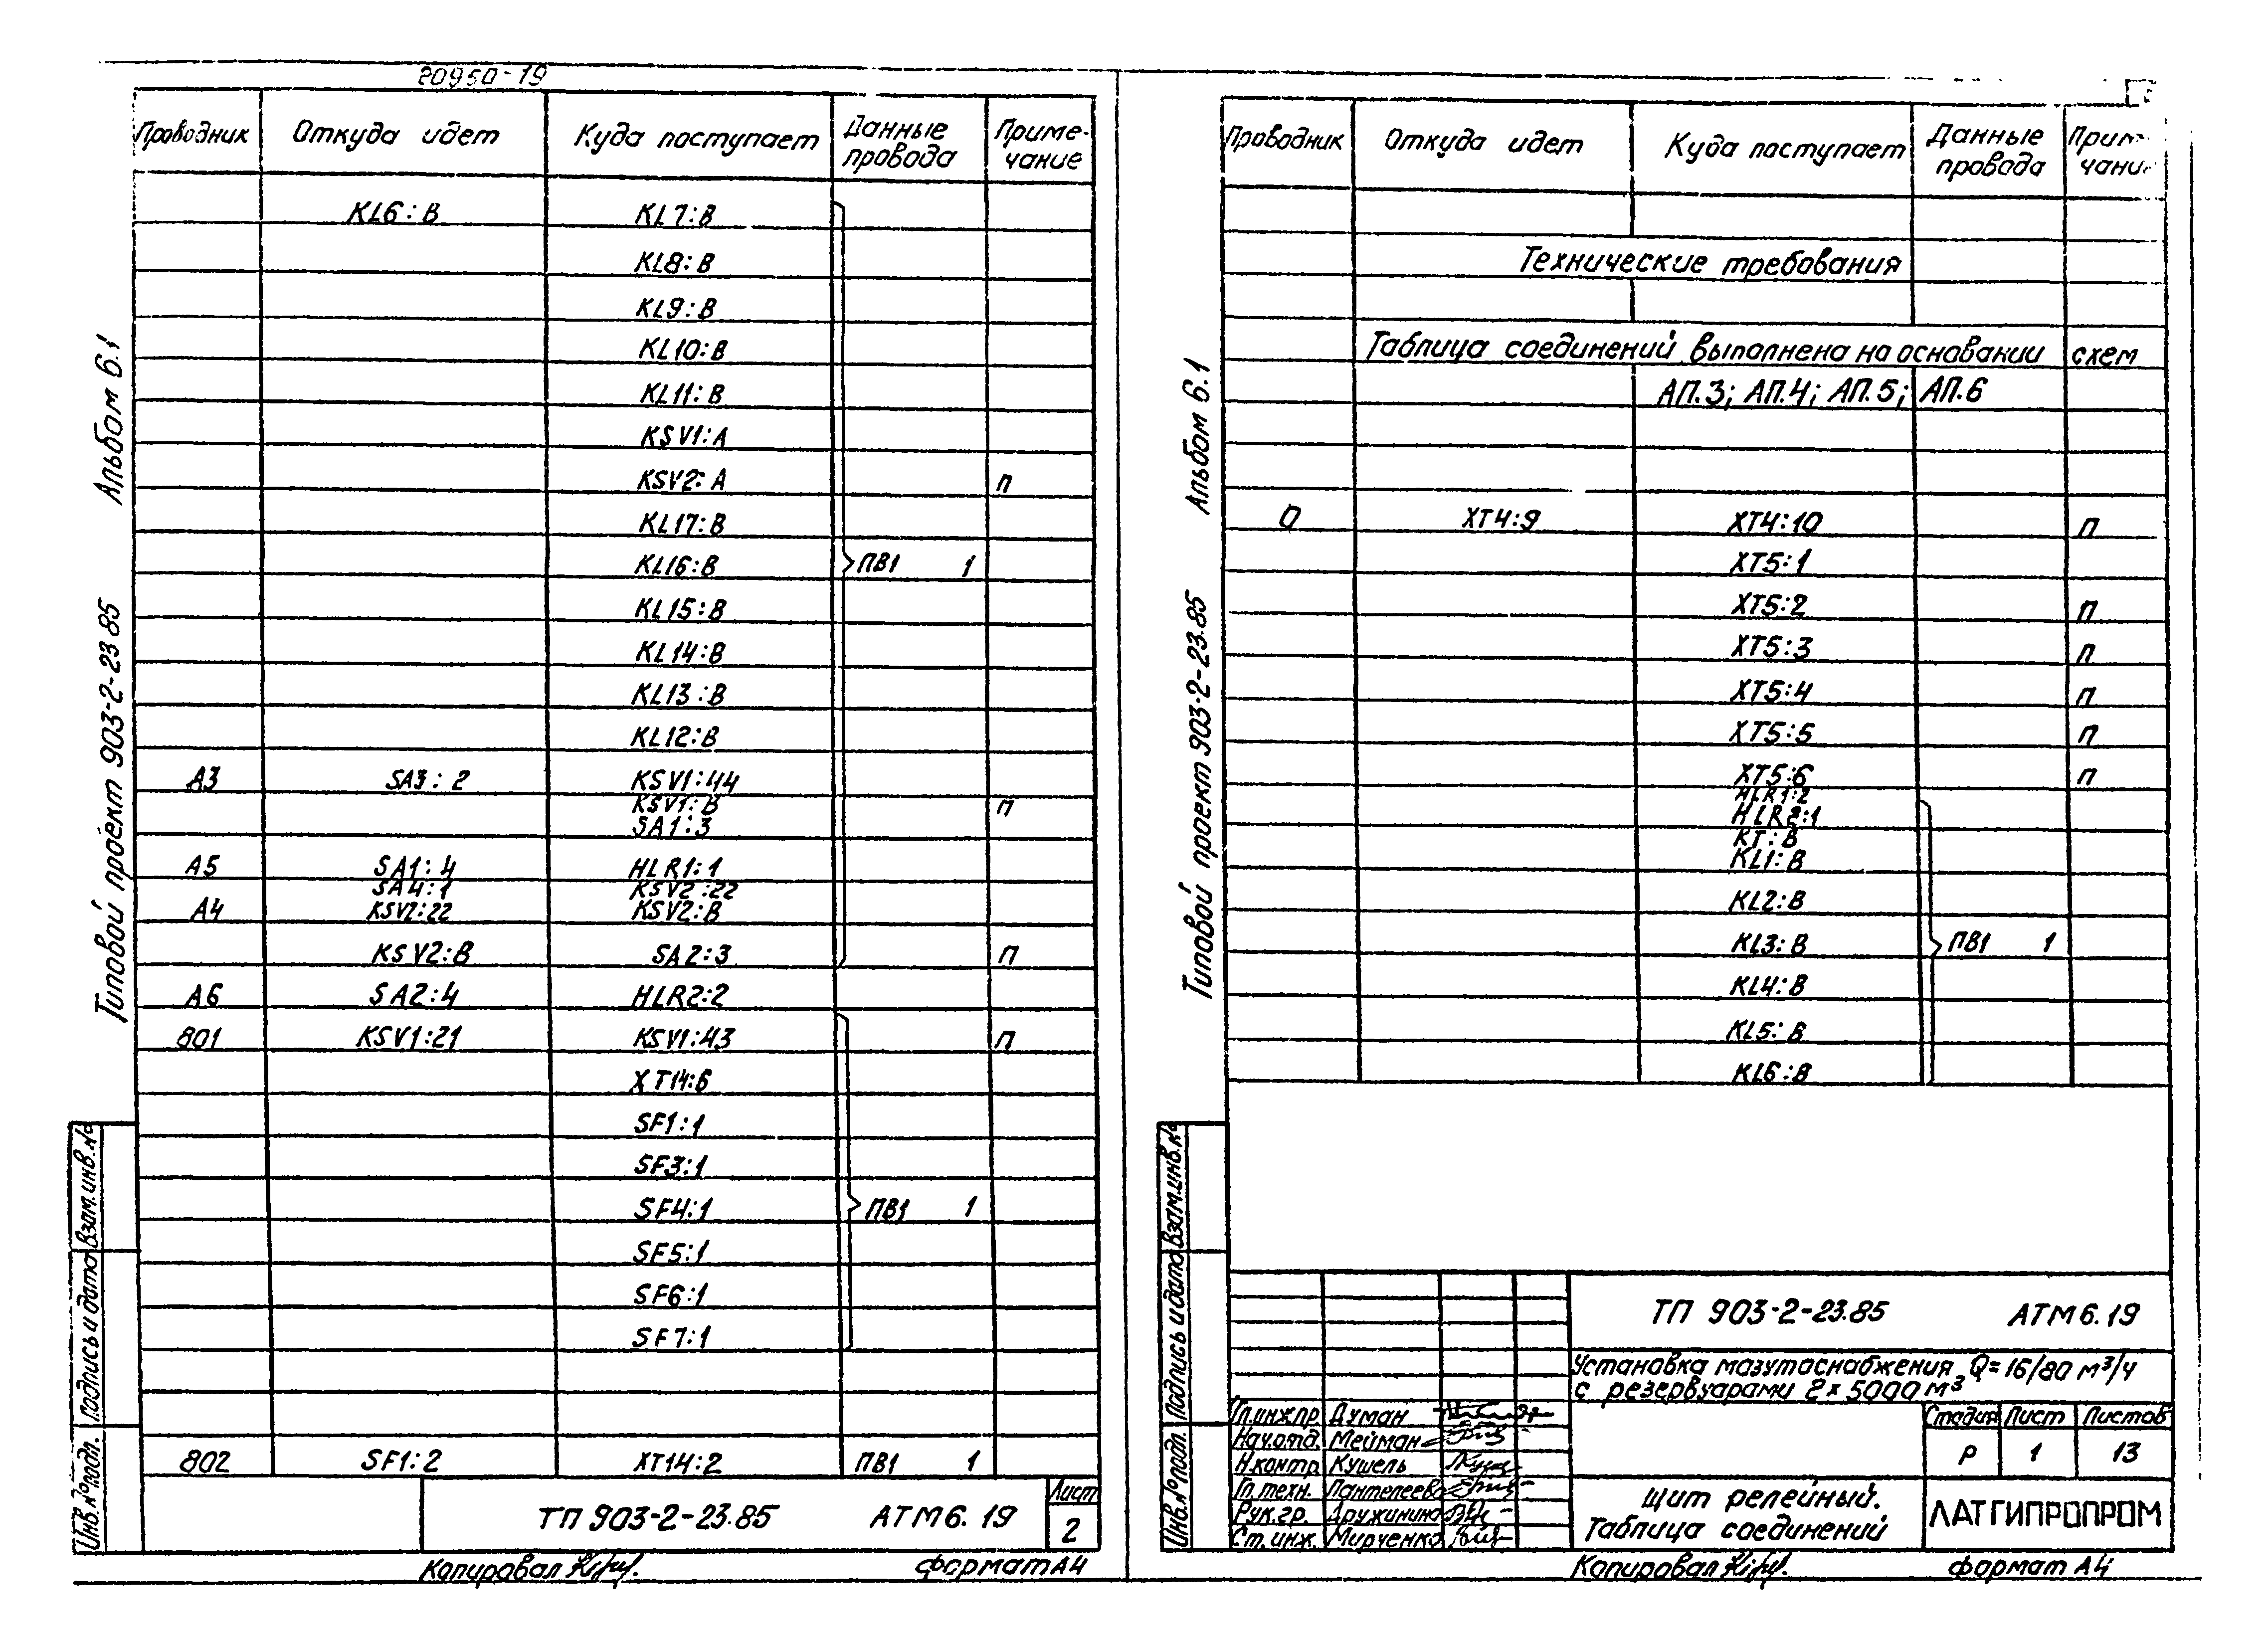 80950-19
Проводник Откуда идет Куда поступает Данные провода Примечание
KL6:В KL7:В
KL8:В
KL9:В
KL10:В
KL11:В
KSV1:А
KSV2:А П
KL17:В
KL16:В ПВ1 1
KL15:В
KL14:В
KL13:В
KL12:В
А3 SA3:2 KSV1:44
KSV1:В П
SA1:3
А5 SA1:4 HLR1:1
SA4:1 KSV2:22
А4 KSV2:22 KSV2:В
KSV2:В SA2:3 П
А6 SA2:4 HLR2:2
801 KSV1:21 KSV1:43 П
XT14:6
SF1:1
SF3:1
SF4:1 ПВ1 1
SF5:1
SF6:1
SF7:1
802 SF1:2 XT14:2 ПВ1 1
ТП 903-2-23.85 АТМ6.19 Лист 2
Копировал Формат А4
Альбом 6.1
Типовой проект 903-2-23 85
Взам.инв.№
Подпись и дата
Инв.№подл.
Проводник Откуда идет Куда поступает Данные провода
Технические требования
Таблица соединений выполнена на основании схем
АП.3; АП.4; АП.5; АП.6
0 XT4:9 XT4:10 П
XT5:1
XT5:2 П
XT5:3 П
XT5:4 П
XT5:5 П
XT5:6 П
HLR1:2
HLR2:1
KT:В
KL1:В
KL2:В
KL3:В ПВ1 1
KL4:В
KL5:В
KL6:В
Альбом 6.1
Типовой проект 903-2-23.85
Взам.инв.№
Подпись и дата
Инв.№подл.
ТП 903-2-23.85 АТМ6.19
Установка мазутоснабжения Q=16/80 м³/ч
с резервуарами 2×5000м³
Гл.инж.пр Думан
Нач.отд. Мейман
Н.контр Кушель
Гл.техн. Пантелеева
Рук.гр. Дружинина
Ст.инж. Мирченко
Стадия Лист Листов
Р 1 13
Щит релейный.
Таблица соединений
ЛАТГИПРОПРОМ
Копировал Формат А4